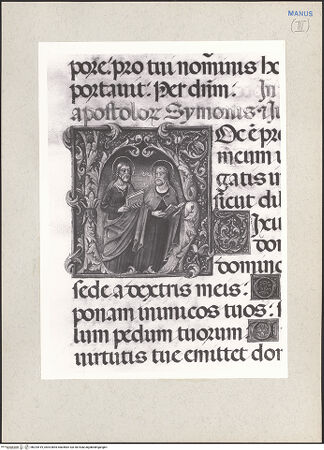 MANUS
pore: pro tui nominis he
portavit: Per dnm: In
apostolor Symonis & Ju
Oc ē pre
meum
gatis in
sicut dil
Ixit
dom
domino
sede a dextris meis:
ponam inimicos tuos: s
lum pedum tuorum:
virtutis tue emittet dom